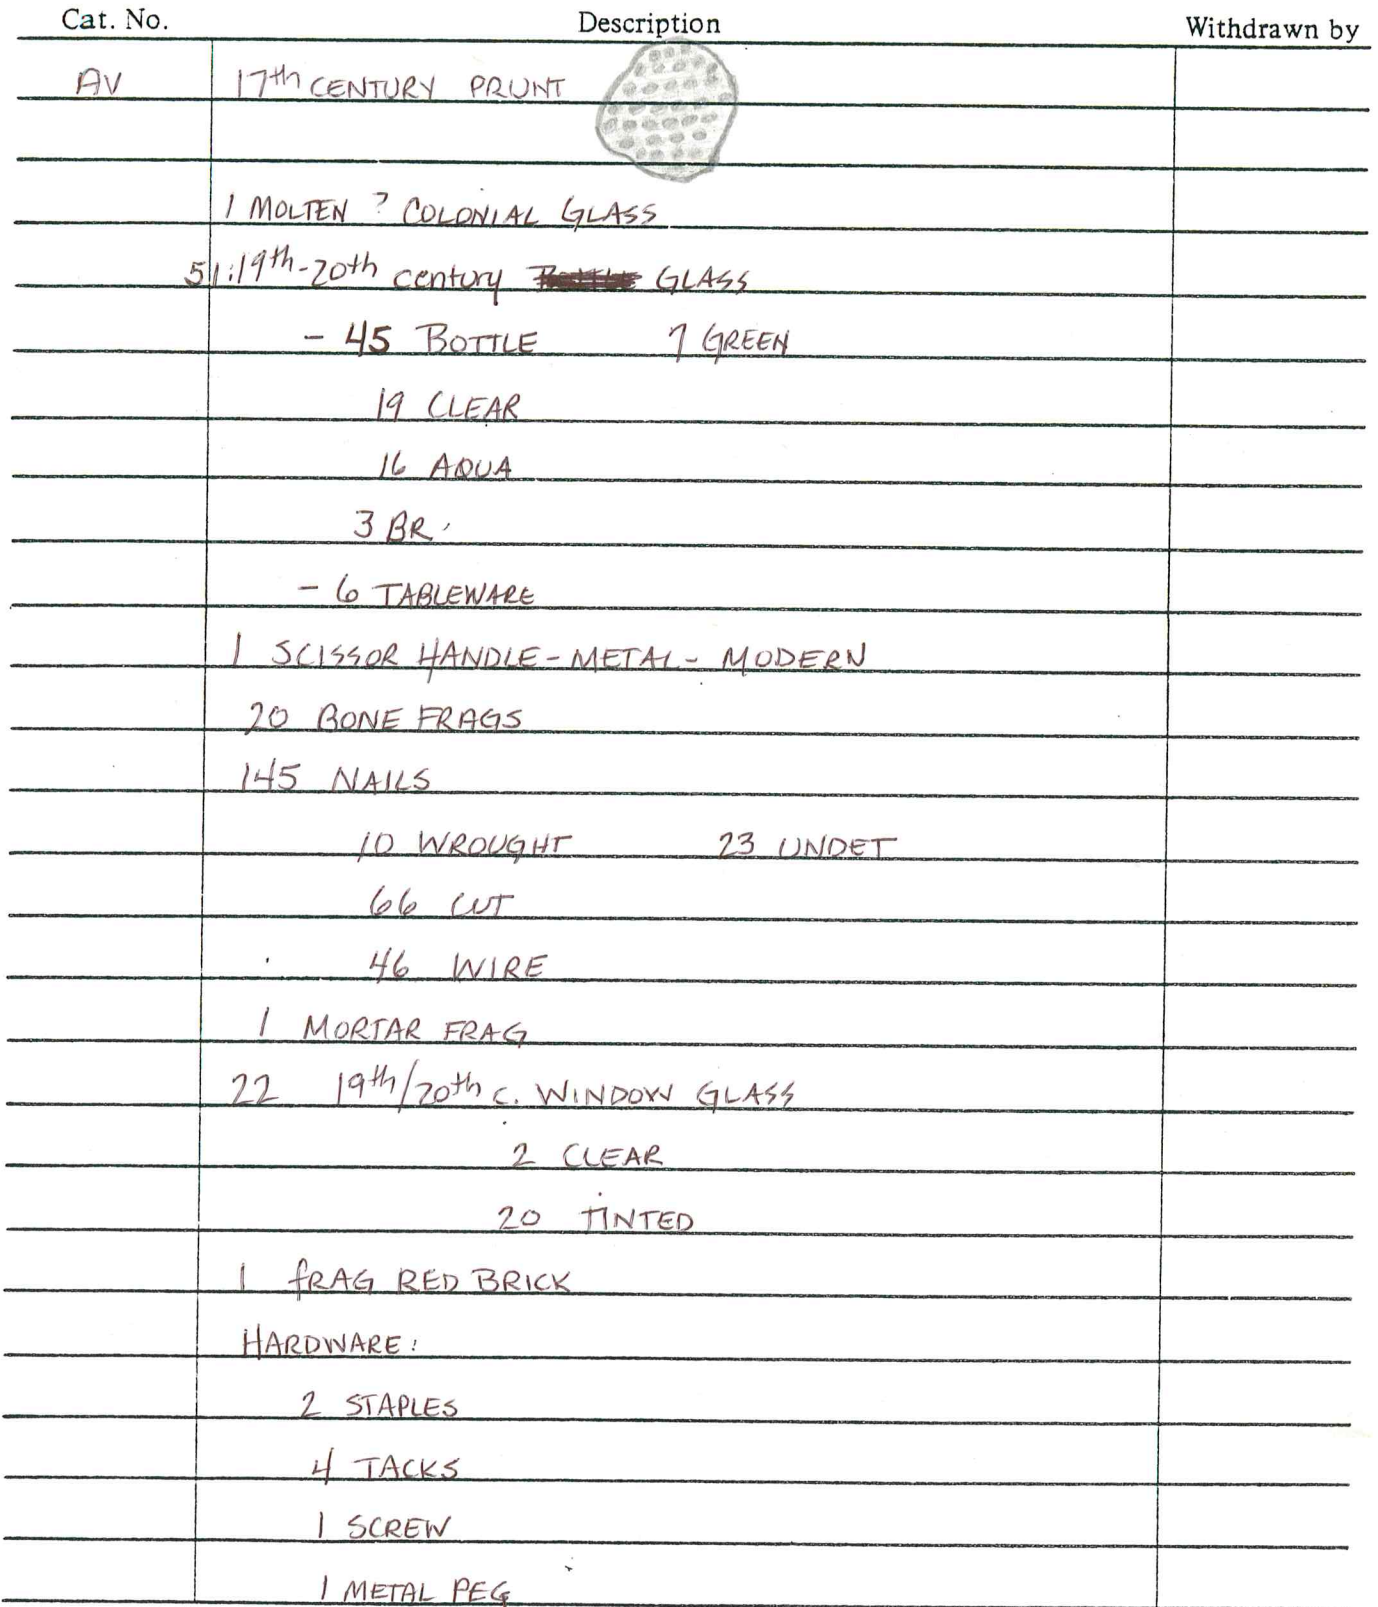 Cat. No. Description Withdrawn by
AV 17th CENTURY PRUNT
1 MOLTEN ? COLONIAL GLASS
51:19th-20th century GLASS
- 45 BOTTLE 7 GREEN
19 CLEAR
16 AQUA
3 BR.
- 6 TABLEWARE
1 SCISSOR HANDLE-METAL- MODERN
20 BONE FRAGS
145 NAILS
10 WROUGHT 23 UNDET
66 CUT
46 WIRE
1 MORTAR FRAG
22 19th/20th c. WINDOW GLASS
2 CLEAR
20 TINTED
1 fRAG RED BRICK
HARDWARE:
2 STAPLES
4 TACKS
1 SCREW
1 METAL PEG